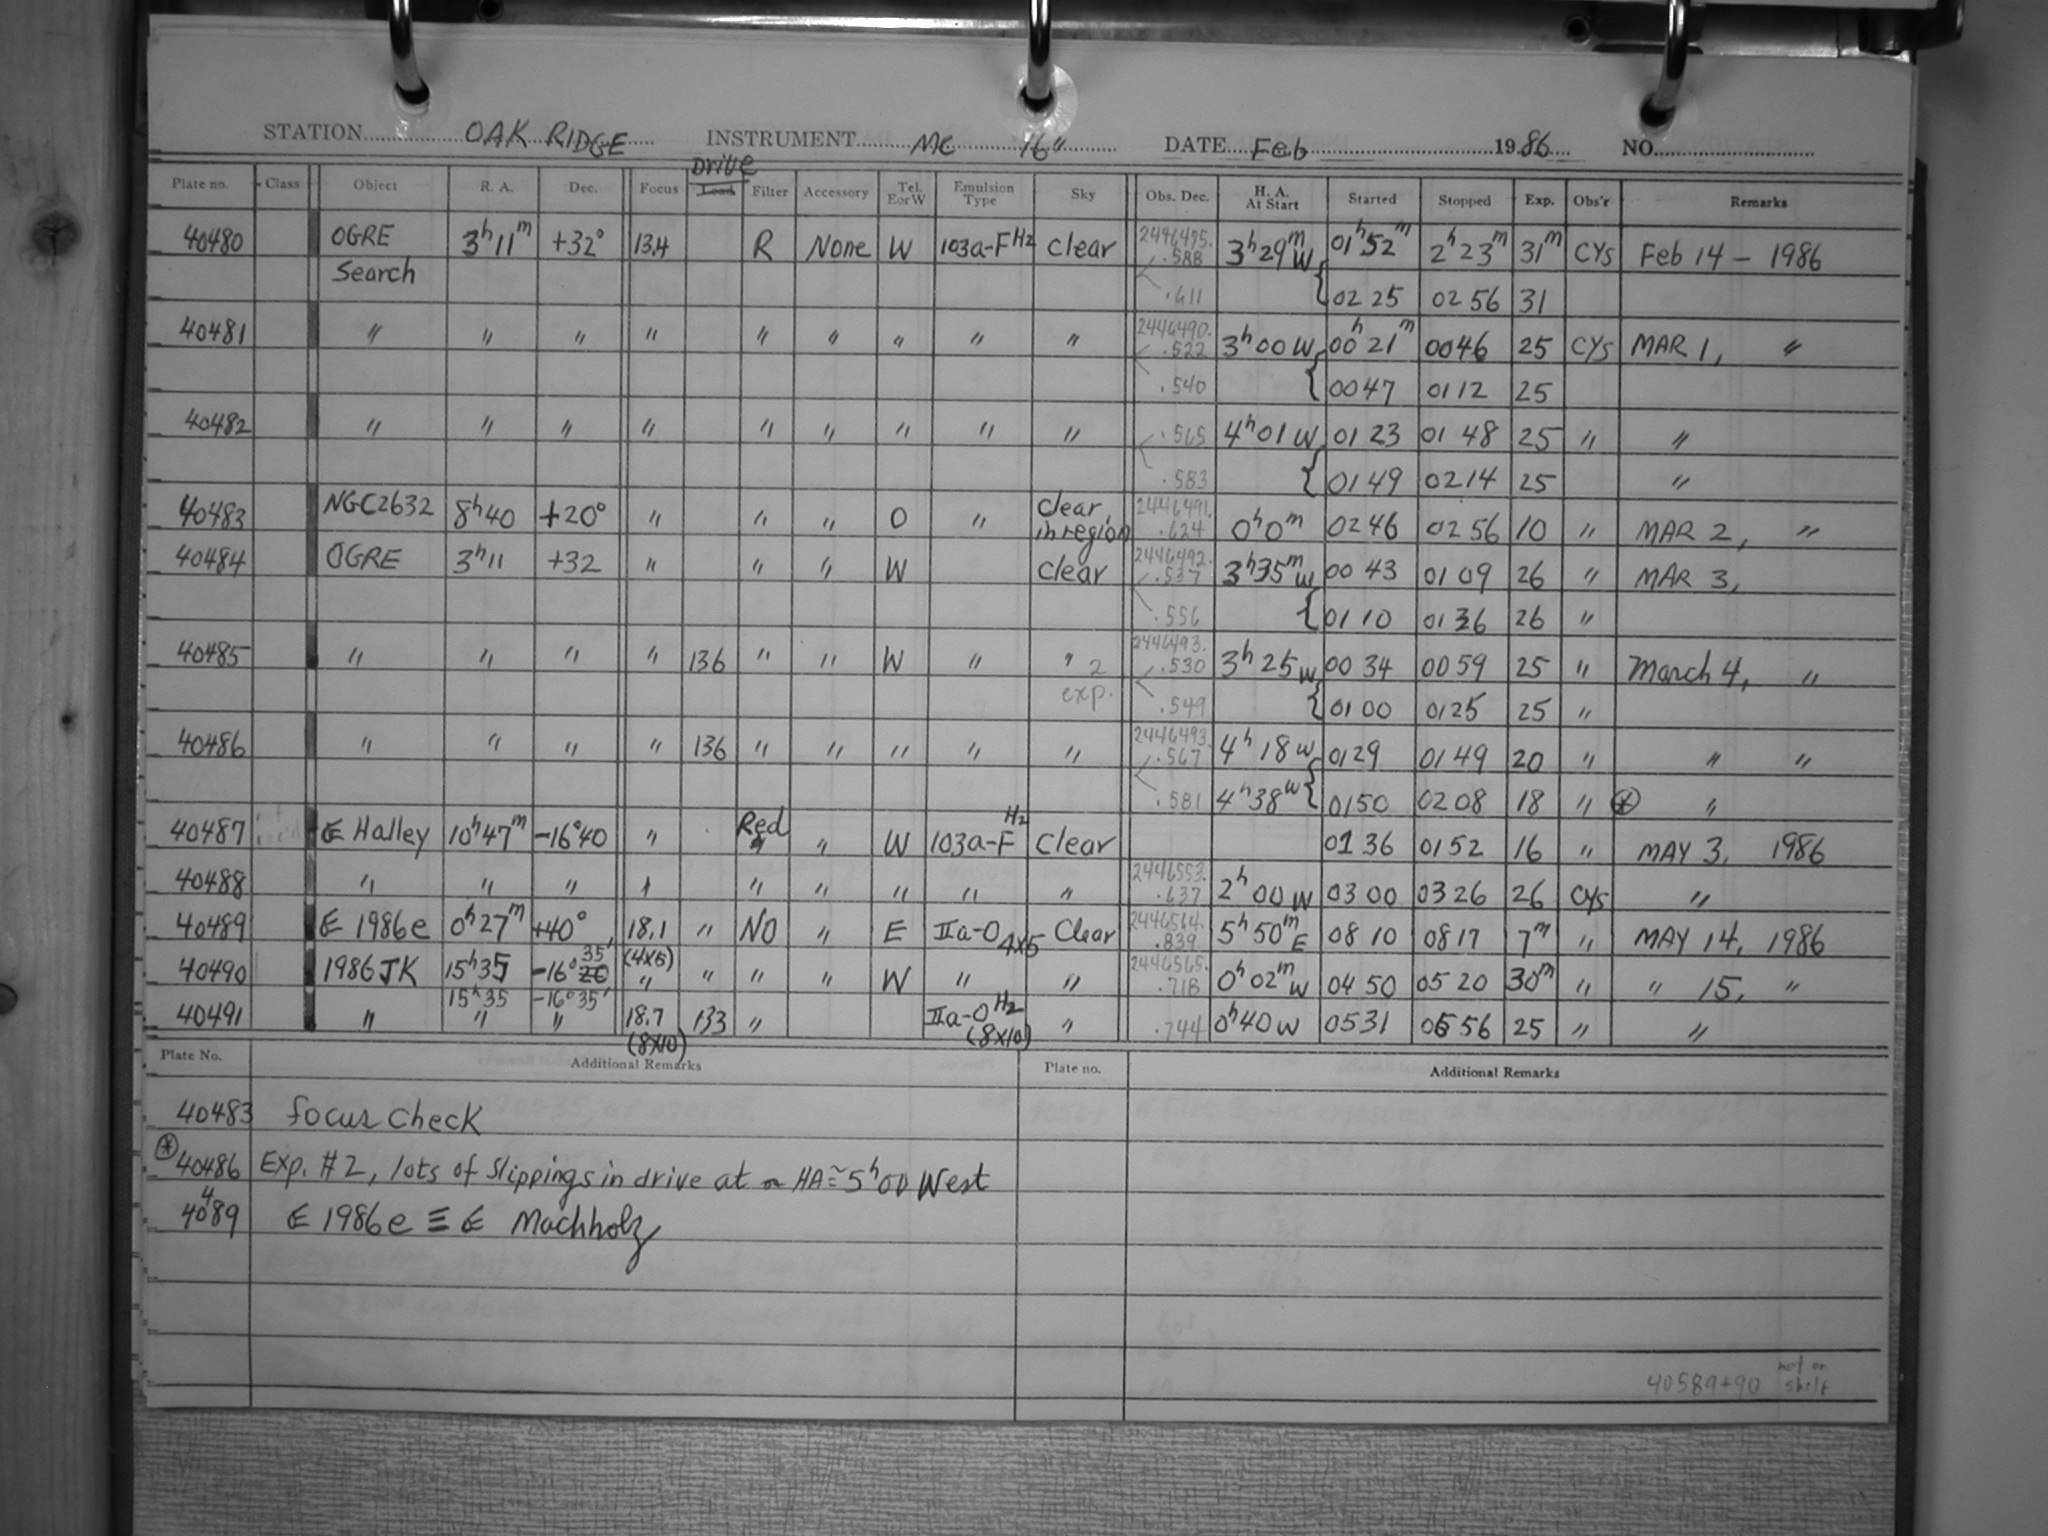 STATION OAK RIDGE INSTRUMENT MC 16" DATE Feb 1986 NO.
Drive
Plate no. Class Object R. A. Dec. Focus Load Filter Accessory Tel. EorW Emulsion Type Sky Obs. Dec. H. A. At Start Started Stopped Exp. Obs'r Remarks
40480 OGRE 3h11m +32° 13.4 R None W 103a-F H2 Clear 2446475. .588 3h29m W 01h52m 2h23m 31m CYS Feb 14 - 1986
Search .611 { 02 25 02 56 31
40481 " " " " " " " " " 2446490. .522 3h00 W 00h21m 0046 25 CYS MAR 1, "
.540 { 0047 0112 25
40482 " " " " " " " " " .565 4h01 W 01 23 01 48 25 " "
.583 { 0149 0214 25 "
40483 NGC2632 8h40 +20° " " " O " Clear in region 2446491. .624 0h0m 0246 02 56 10 " MAR 2, "
40484 OGRE 3h11 +32 " " " W Clear 2446492. .537 3h35m W 00 43 01 09 26 " MAR 3,
.556 { 01 10 01 36 26 "
40485 " " " " 136 " " W " " 2 exp. 2446493. .530 3h25 W 00 34 00 59 25 " March 4, "
.549 { 01 00 0125 25 "
40486 " " " " 136 " " " " " 2446493. .567 4h18 W 0129 01 49 20 " " "
.581 4h38 W { 0150 0208 18 " ⊛ "
40487 Halley 10h47m -16°40 " Red " W 103a-F H2 Clear 01 36 0152 16 " MAY 3, 1986
40488 " " " " " " " " " 2446553. .637 2h00 W 03 00 03 26 26 CYS "
40489 1986e 0h27m +40° 18.1 (4x5) " NO " E IIa-O 4x5 Clear 2446564. .839 5h50m E 08 10 0817 7m " MAY 14, 1986
40490 1986 JK 15h35 -16°35' " " " " W " " 2446565. .718 0h02m W 04 50 05 20 30m " " 15, "
40491 " 15h35 " -16°35' " 18.7 (8x10) 133 " IIa-O H2 (8x10) " .744 0h40 W 0531 0556 25 " "
Plate No. Additional Remarks Plate no. Additional Remarks
40483 focus check
⊛ 40486 Exp. #2, lots of slippings in drive at HA≃5h00 West
40489 1986e ≡ Machholz
40589+90 not on shelf